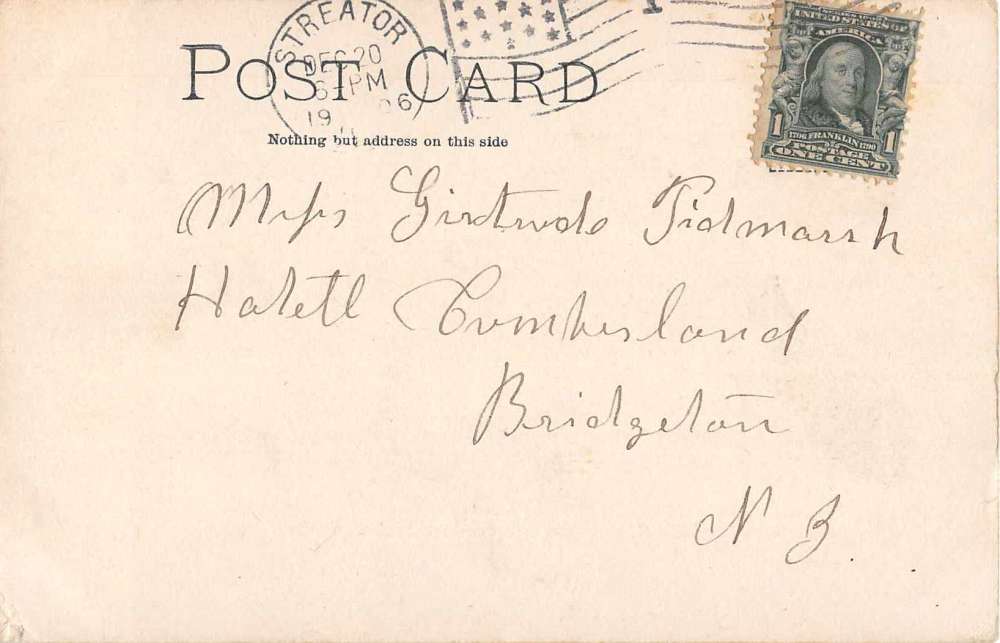 STREATOR
DEC 20
6 PM
1906
POST CARD
Nothing but address on this side
UNITED STATES OF
AMERICA
1 1706 FRANKLIN 1790 1
POSTAGE
ONE CENT
Miss Girtrude Tidmarsh
Hatetl Cumberland
Bridgeton
N J.